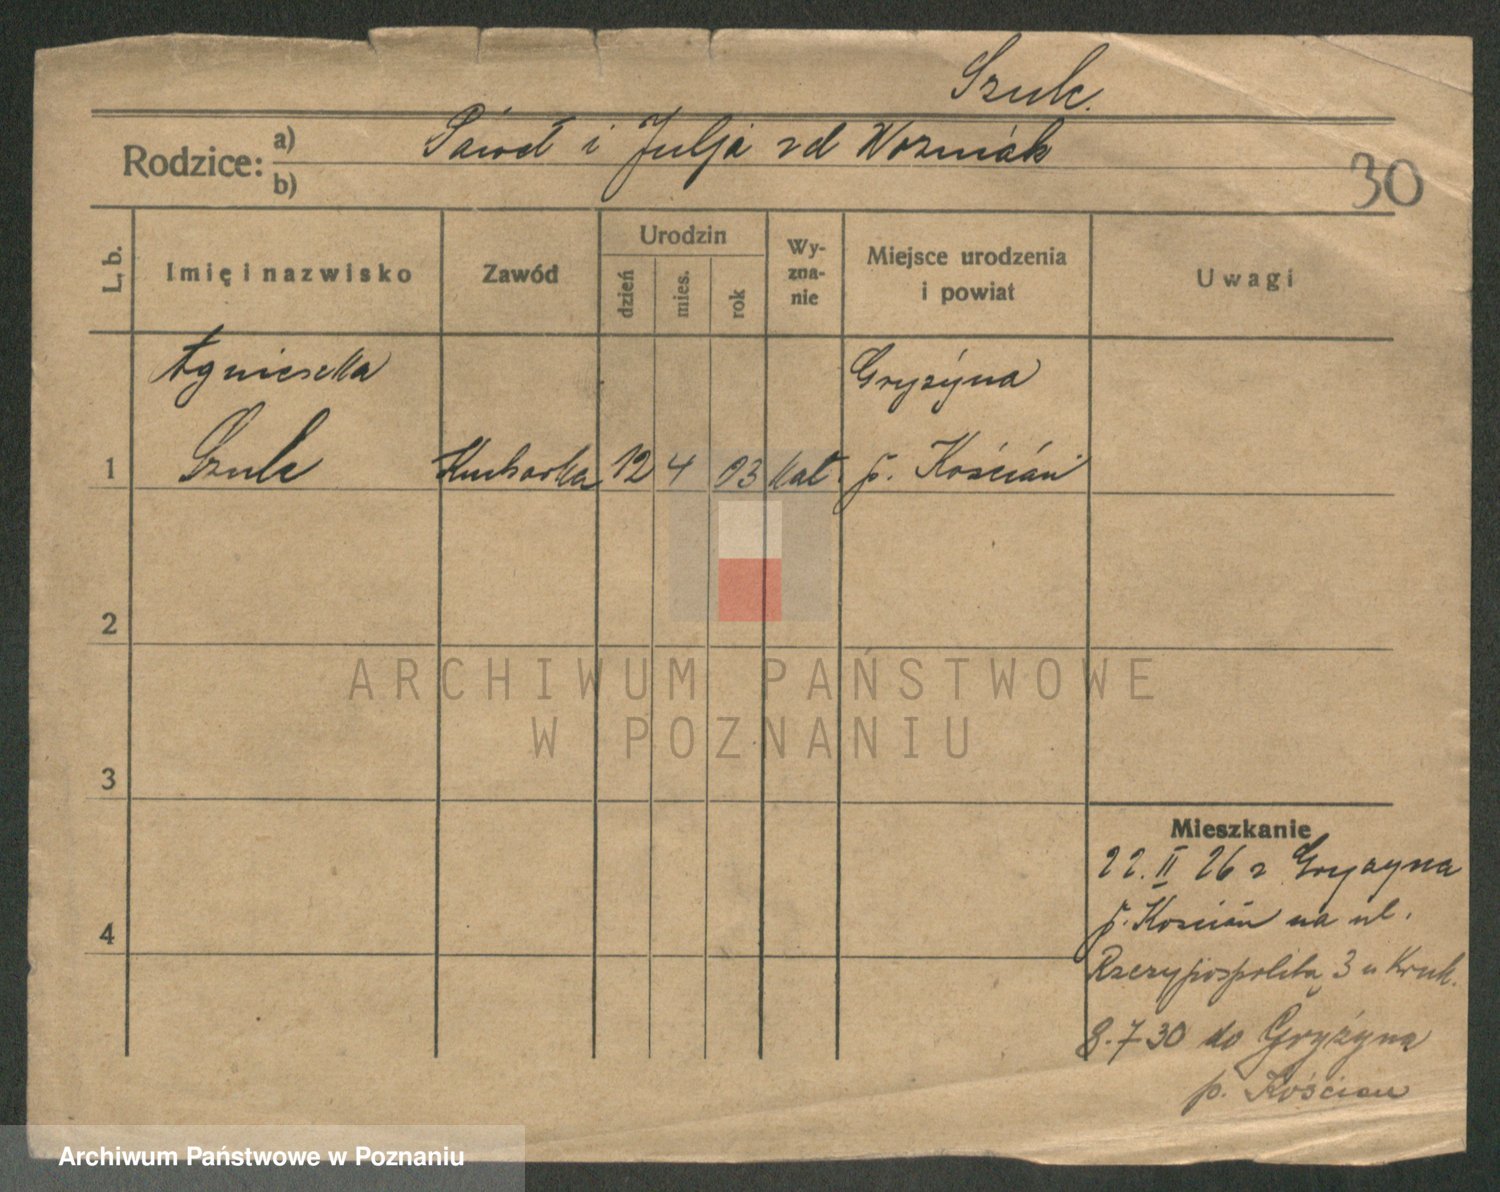 Szulc.
Rodzice: a) Paweł i Julja zd Wozniak
b)
30
L. b.
Imię i nazwisko
Zawód
Urodzin
dzień
mies.
rok
Wy-
zna-
nie
Miejsce urodzenia
i powiat
Uwagi
Agnieszka
Gryżyna
1 Szulc Kucharka 12 4 03 kat. p. Kościan
2
3
4
ARCHIWUM PAŃSTWOWE
W POZNANIU
Mieszkanie
22. II 26 z Gryzyna
p. Kościan na ul.
Rzeczypospolita 3 u Kruk.
8.7 30 do Gryżyna
p. Kościan
Archiwum Państwowe w Poznaniu